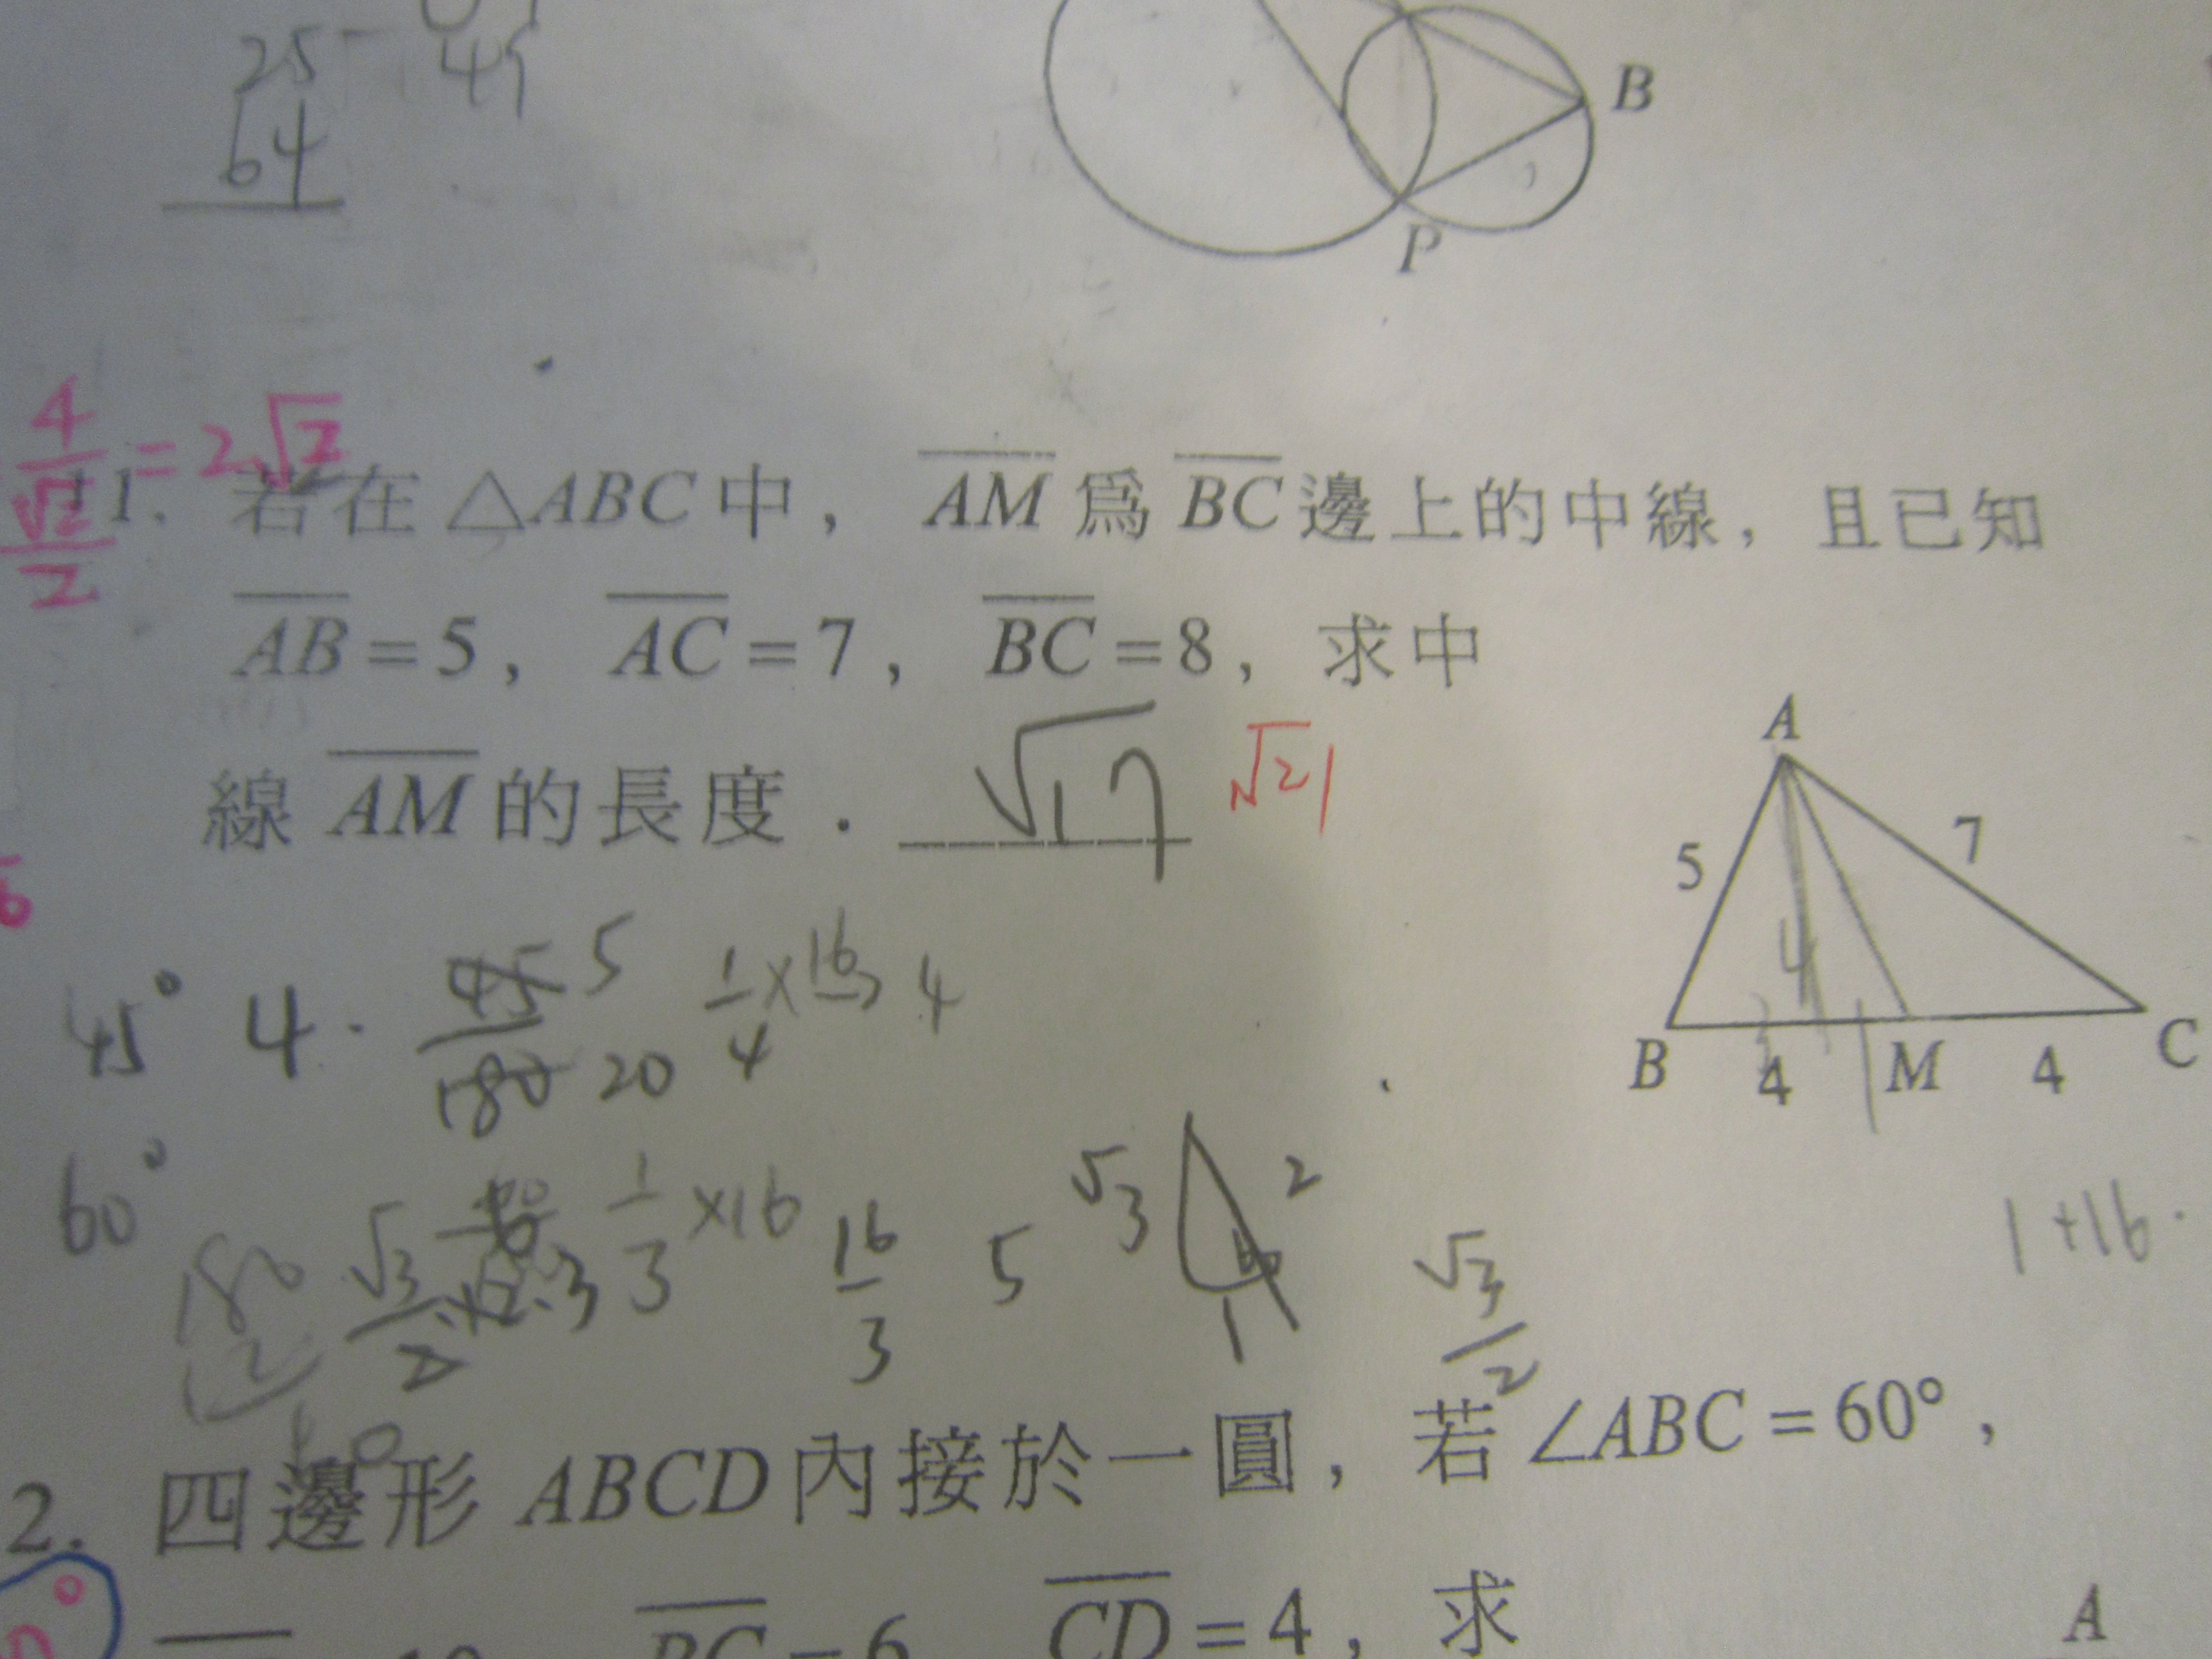 25 - 49
64
B
P
4/(√2/2) = 2√2
11. 若在 △ABC 中, AM 爲 BC 邊上的中線, 且已知
AB = 5, AC = 7, BC = 8, 求中
線 AM 的長度. √17 √21
A
5 7
4
B 4 M 4 C
45° 4 . 45/180 5 20 1/4 × 16 4
60°
√3/2 3 1/3 × 16 16/3 5 √3 2 1 √3/2
1 + 16
180
60
2. 四邊形 ABCD 內接於一圓, 若 ∠ABC = 60°,
BC = 6 CD = 4, 求
A